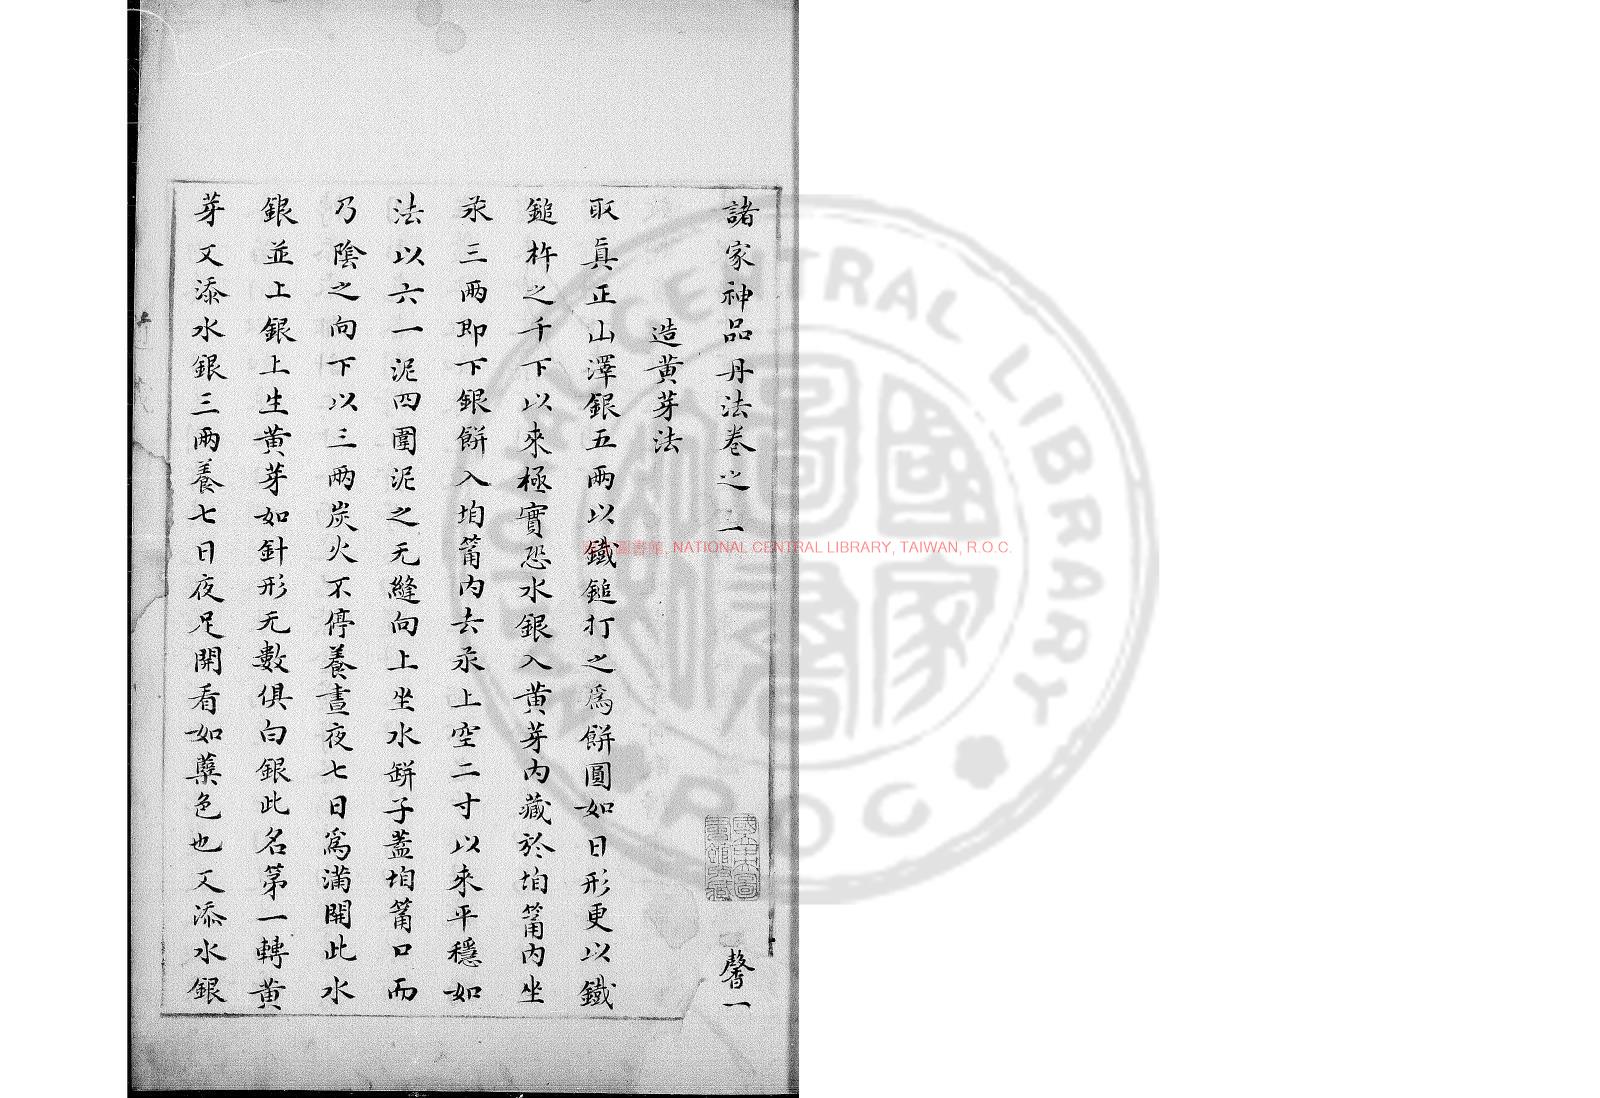 諸家神品丹法卷之二 馨一
造黄芽法
取真正山澤銀五兩以鐵鎚打之為餅圓如日形更以鐵
鎚杵之千下以來極實恐水銀入黄芽内藏於垍筩内坐
汞三兩即下銀餅入垍筩内去汞上空二寸以來平穩如
法以六一泥四圍泥之无縫向上坐水缾子蓋垍筩口而
乃陰之向下以三兩炭火不停養晝夜七日為滿開此水
銀並上銀上生黄芽如針形无數俱白銀此名第一轉黄
芽又添水銀三兩養七日夜足開看如蘗色也又添水銀
NATIONAL CENTRAL LIBRARY, TAIWAN, R.O.C.
CENTRAL LIBRARY
R O C